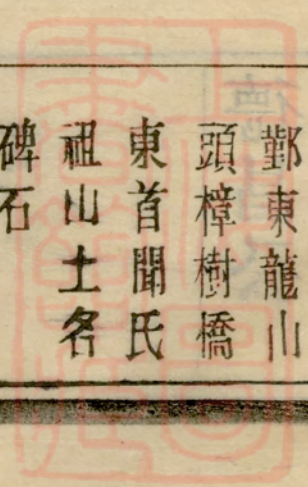 鄞東龍山
頭樟樹橋
東首聞氏
祖山土名
碑石